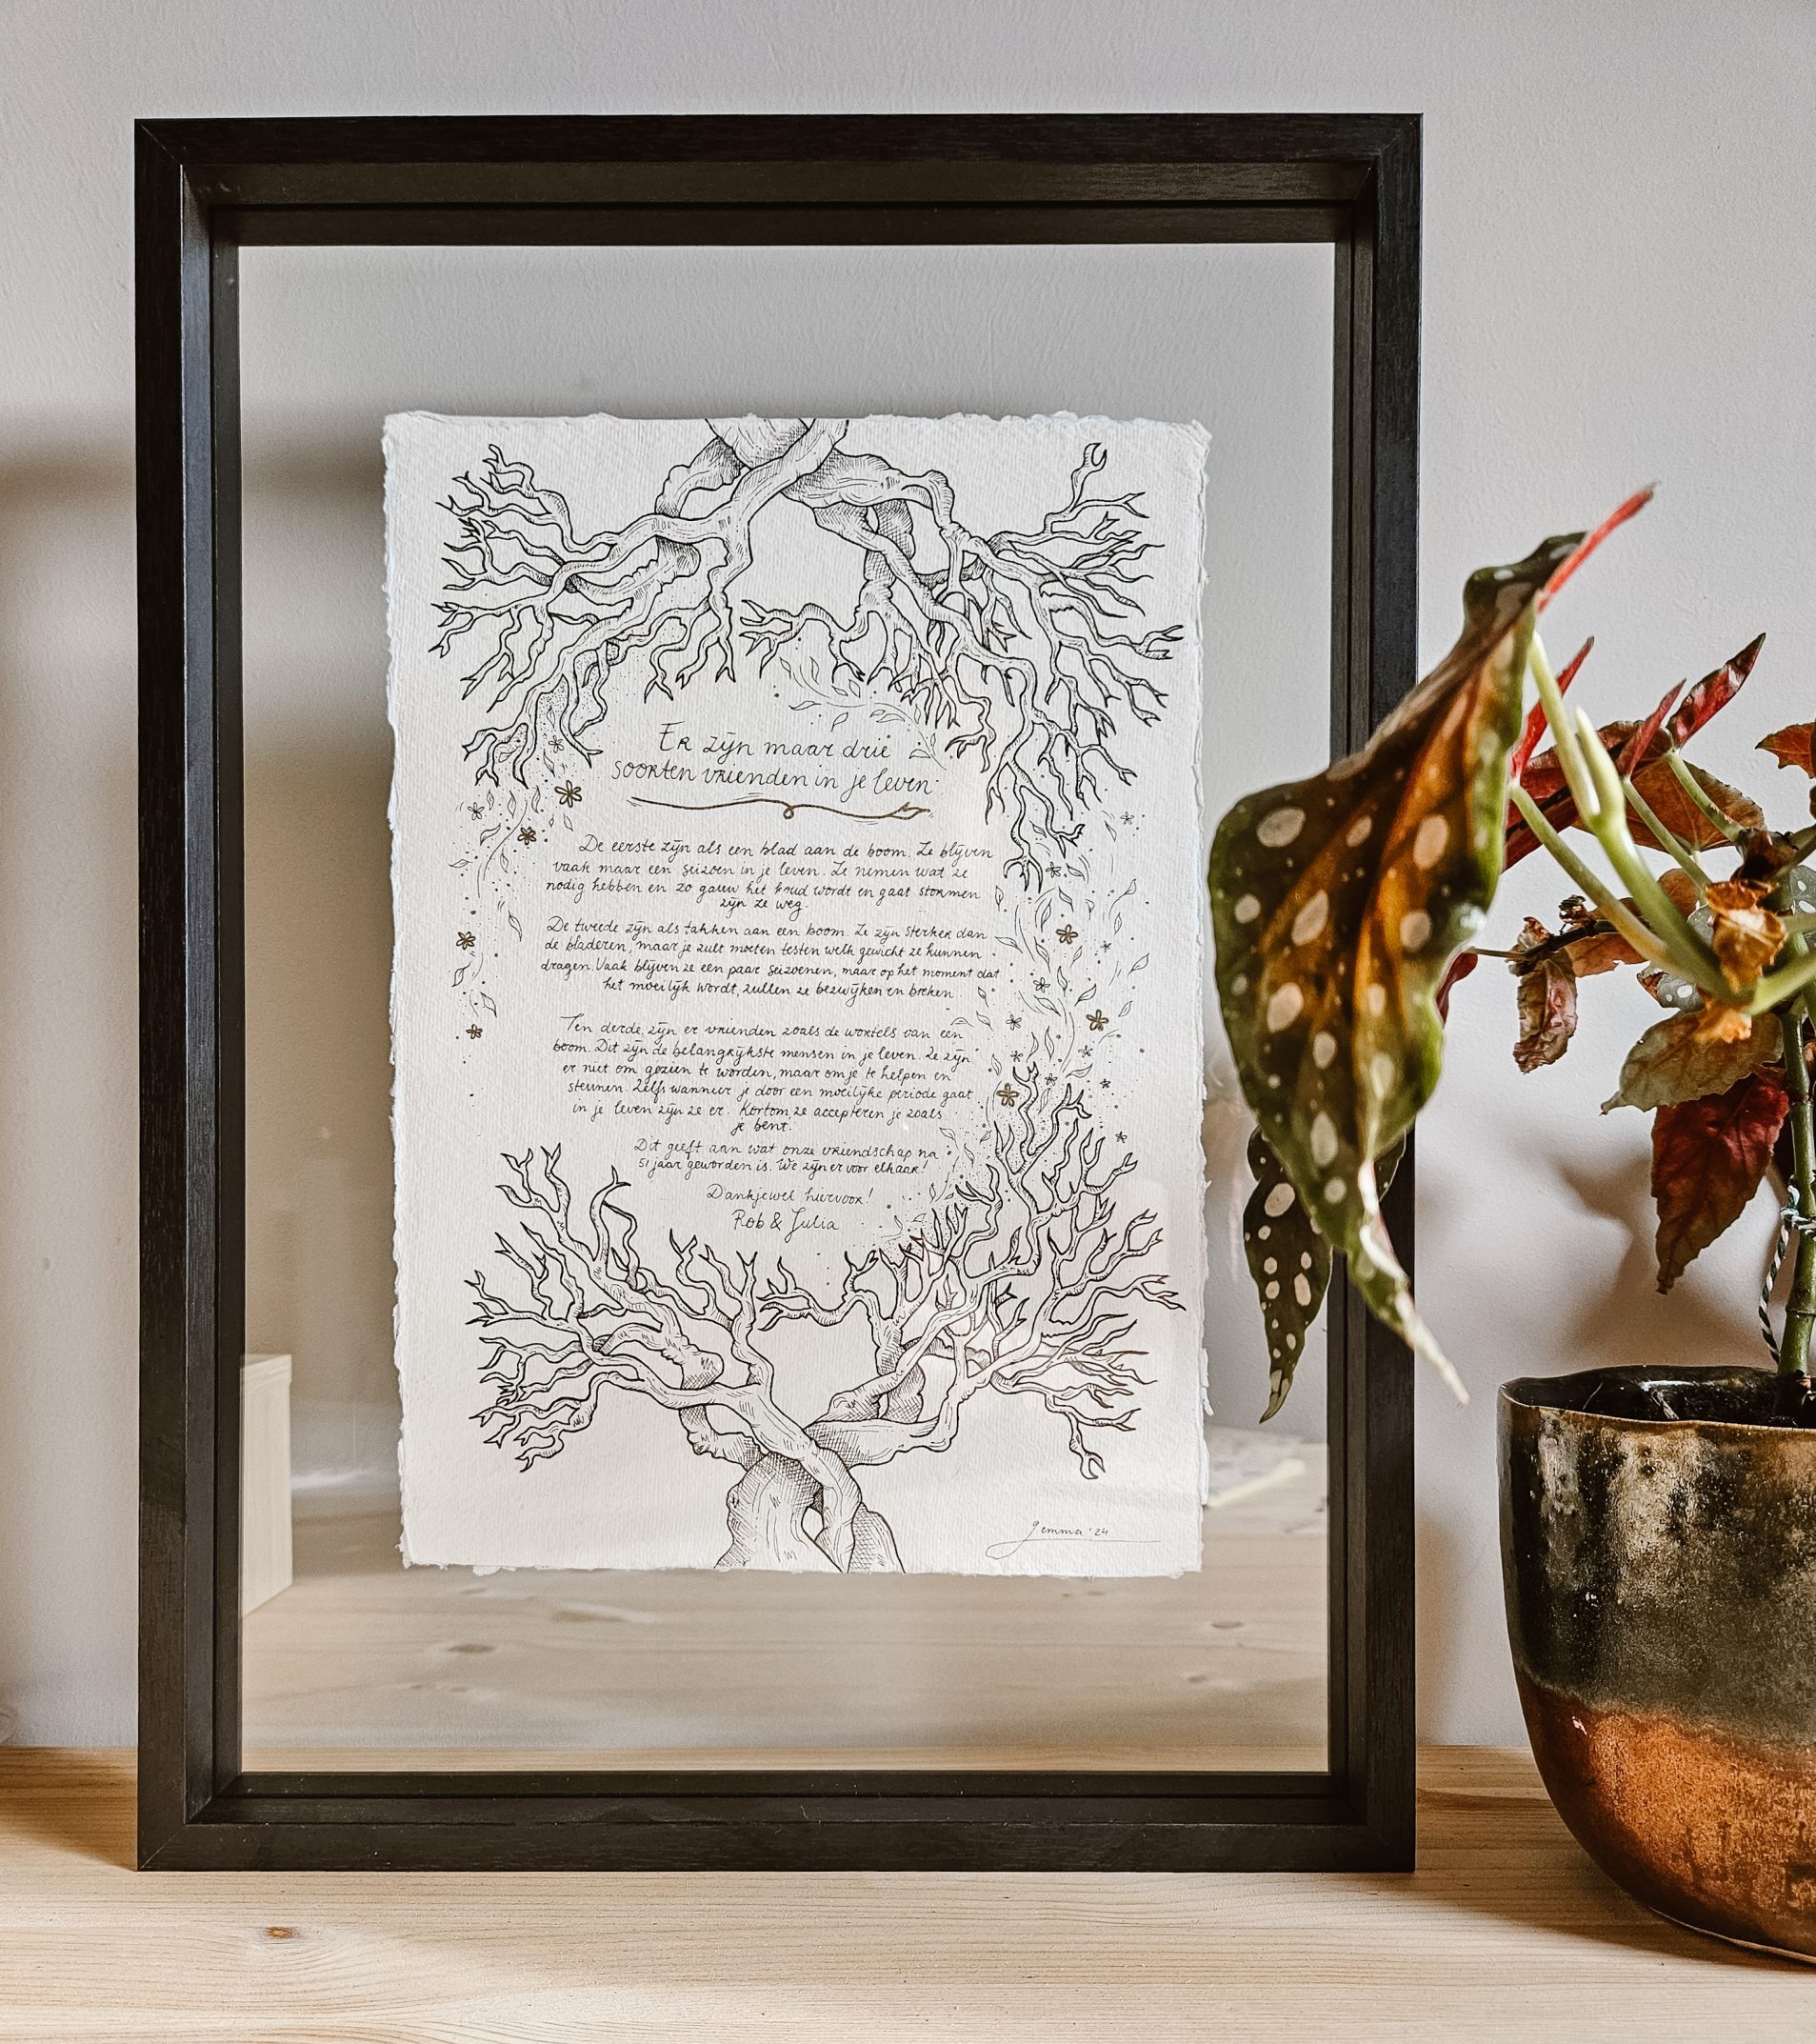 Er zijn maar drie
soorten vrienden in je leven
De eerste zijn als een blad aan de boom. Ze blijven
vaak maar een seizoen in je leven. Ze nemen wat ze
nodig hebben en zo gauw het koud wordt en gaat stormen
zijn ze weg.
De tweede zijn als takken aan een boom. Ze zijn sterker dan
de bladeren, maar je zult moeten testen welk gewicht ze kunnen
dragen. Vaak blijven ze een paar seizoenen, maar op het moment dat
het moeilijk wordt, zullen ze bezwijken en breken.
Ten derde, zijn er vrienden zoals de wortels van een
boom. Dit zijn de belangrijkste mensen in je leven. Ze zijn
er niet om gezien te worden, maar om je te helpen en
steunen. Zelfs wanneer je door een moeilijke periode gaat
in je leven zijn ze er. Kortom, ze accepteren je zoals
je bent.
Dit geeft aan wat onze vriendschap na
51 jaar geworden is. We zijn er voor elkaar!
Dankjewel hiervoor!
Rob & Julia
gemma '24